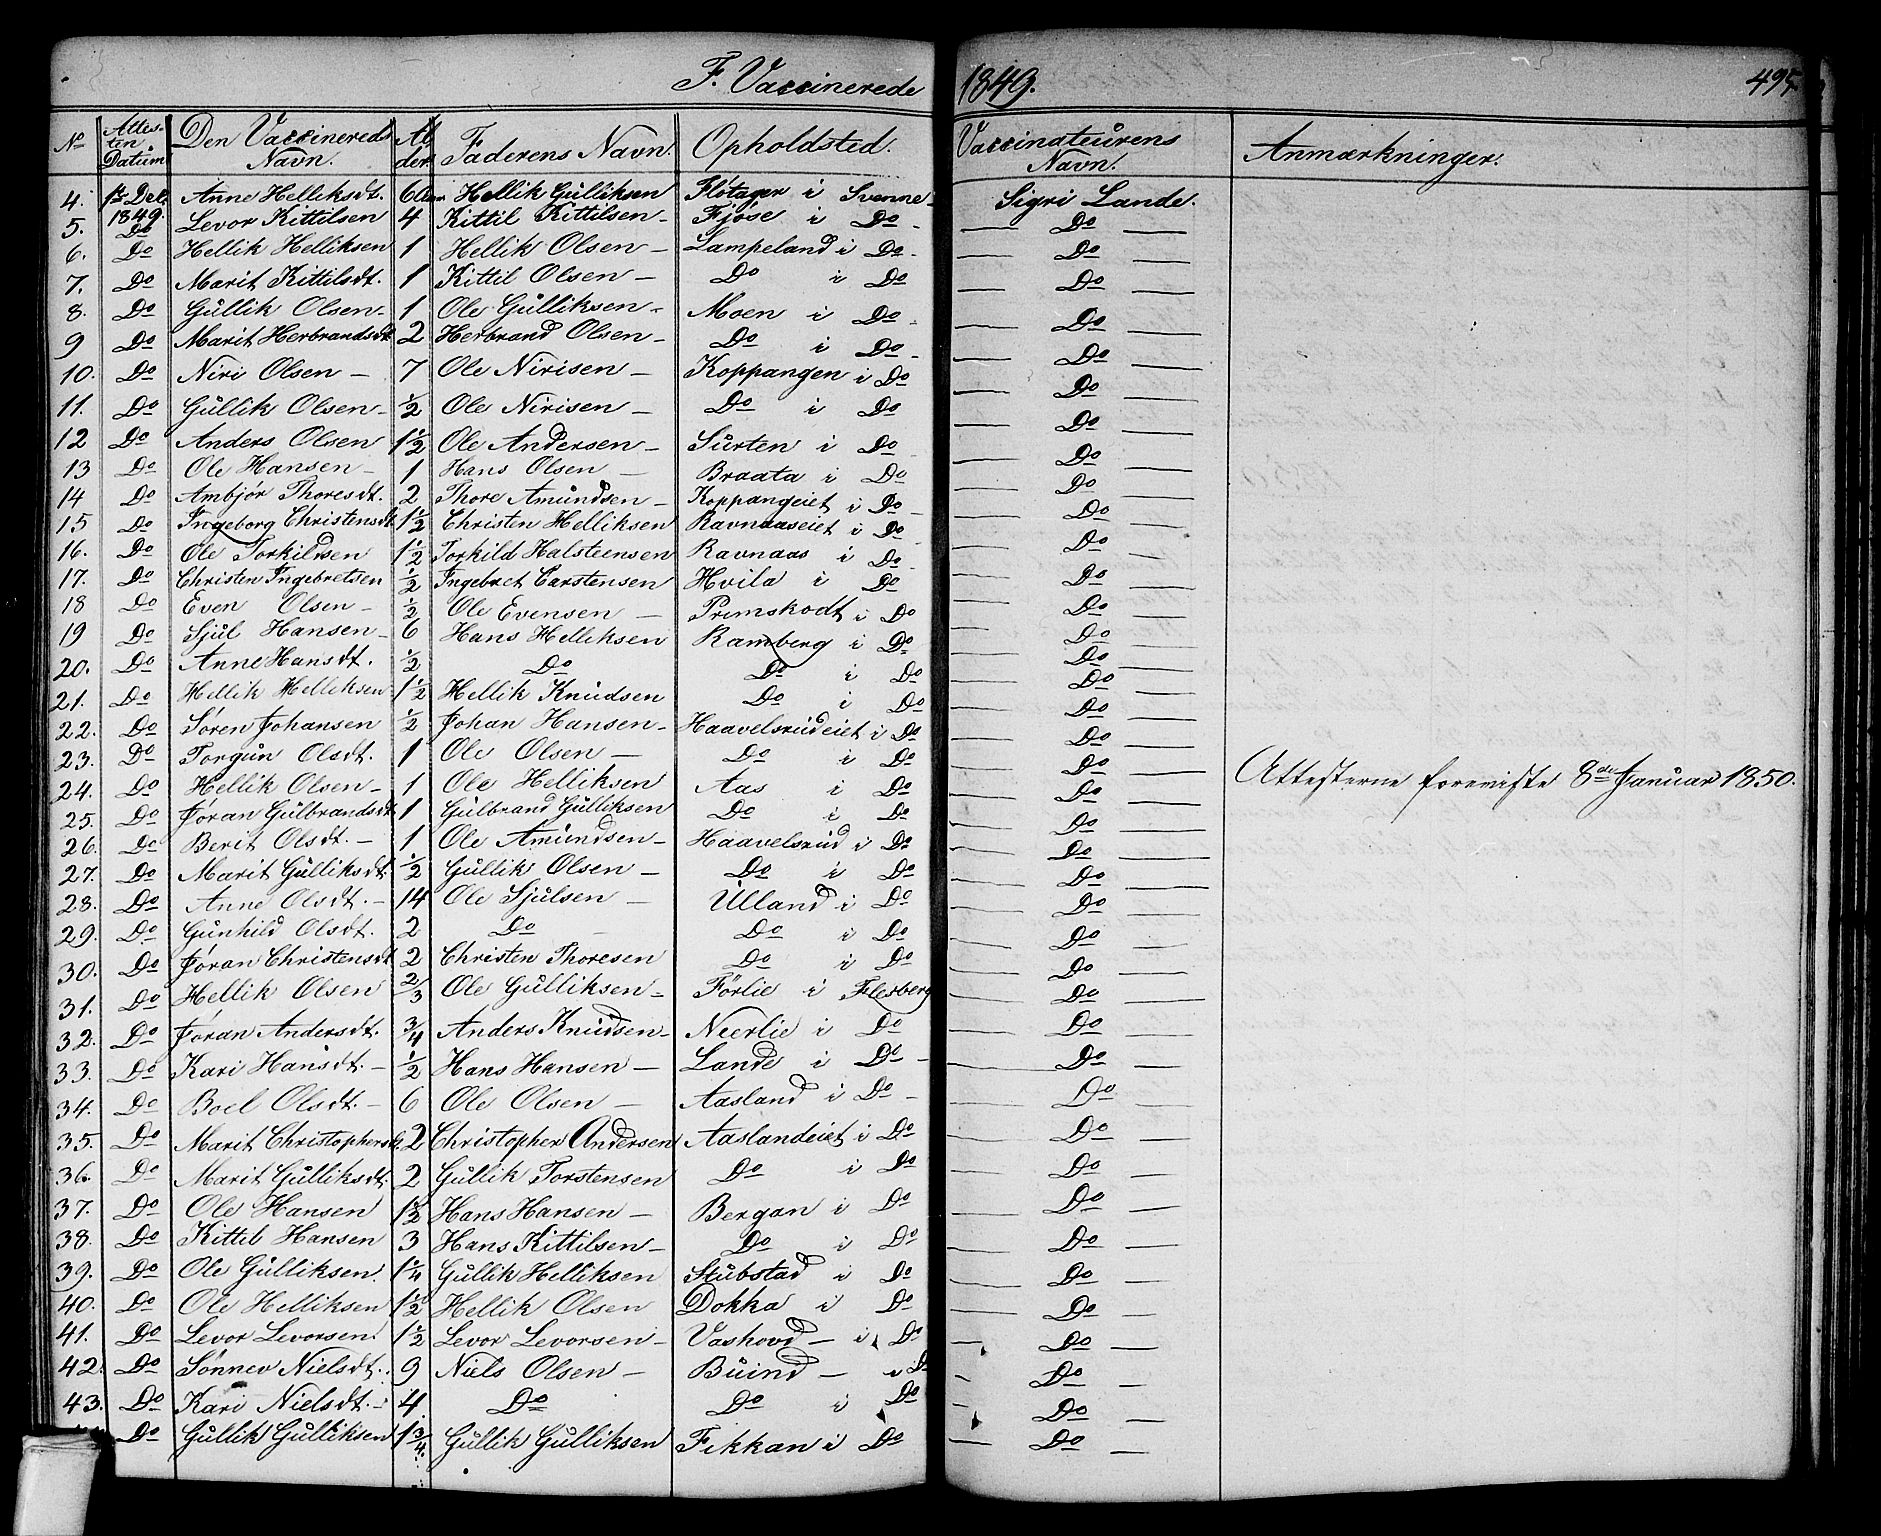 F. Vaccinerede 1849. 495
No Attesten Datum Den Vaccineredes Navn. Alder Faderens Navn. Opholdsted. Vaccinateurens Navn. Anmærkninger.
4. 1st Dec. 1849. Anne Helliksdt. 6 Hellik Gulliksen Flötager i Svenne Sigri Lande.
5. Do Levor Kittilsen 4 Kittil Kittilsen – Fjöse i Do – Do –
6. Do Hellik Helliksen 1 Hellik Olsen – Lampeland i Do – Do –
7. Do Marit Kittilsdt. 1 Kittil Olsen – Do i Do – Do –
8. Do Gullik Olsen – 1 Ole Gulliksen – Moen i Do – Do –
9 Do Marit Herbrandsdt 2 Herbrand Olsen – Do i Do – Do –
10. Do Niri Olsen – 7 Ole Nirisen – Koppangen i Do – Do –
11. Do Gullik Olsen – 1/2 Ole Nirisen – Do i Do – Do –
12 Do Anders Olsen 1 1/2 Ole Andersen – Surten i Do – Do –
13 Do Ole Hansen – 1 Hans Olsen – Braata i Do – Do –
14 Do Ambjör Thoresdt. 2 Thore Amundsen – Koppangeiet i Do – Do –
15 Do Ingeborg Christensdt 1 1/2 Christen Helliksen Ravnaaseiet i Do – Do –
16. Do Ole Torkildsen 1 1/2 Torkild Halsteensen Ravnaas i Do – Do –
17. Do Christen Ingebretsen 1/2 Ingebret Carstensen Hvila i Do – Do –
18 Do Even Olsen – 1/2 Ole Evensen – Primskodt i Do – Do –
19 Do Sjul Hansen – 6 Hans Helliksen Ramberg i Do – Do –
20. Do Anne Hansdt. 1/2 Do Do i Do – Do –
21. Do Hellik Helliksen 1 1/2 Hellik Knudsen Do i Do – Do –
22. Do Sören Johansen 1/2 Johan Hansen – Haavelsrudeiet i Do – Do –
23. Do Torgun Olsdt. 1 Ole Olsen – Do i Do – Do –
24. Do Hellik Olsen – 1 Ole Helliksen Aas i Do – Do – Attesterne foreviste 8de Januar 1850.
25. Do Jöran Gulbrandsdt 1 Gulbrand Gulliksen Do i Do – Do –
26. Do Berit Olsdt. – 1 Ole Amundsen – Haavelsrud i Do – Do –
27. Do Marit Gulliksdt. 1/2 Gullik Olsen – Do i Do – Do –
28. Do Anne Olsdt. – 14 Ole Sjulsen – Ulland i Do – Do –
29. Do Gunhild Olsdt. 2 Do – Do i Do – Do –
30. Do Jöran Christensdt 2 Christen Thoresen Do i Do – Do –
31. Do Hellik Olsen 2/3 Ole Gulliksen – Förlie i Flesberg – Do –
32. Do Jöran Andersdt. 3/4 Anders Knudsen – Neerlie i Do – Do –
33. Do Kari Hansdt. – 1/2 Hans Hansen – Lande i Do – Do –
34. Do Boel Olsdt. – 6 Ole Olsen – Aasland i Do – Do –
35. Do Marit Christophersdt 2 Christopher Andersen Aaslandeiet i Do – Do –
36. Do Marit Gulliksdt. 2 Gullik Torstensen Do i Do – Do –
37. Do Ole Hansen 1 1/2 Hans Hansen – Bergan i Do – Do –
38. Do Kittil Hansen 3 Hans Kittilsen – Do i Do – Do –
39. Do Ole Gulliksen. 1 1/4 Gullik Helliksen Stubstad i Do – Do –
40. Do Ole Helliksen 1 1/2 Hellik Olsen Dokka i Do – Do –
41. Do Levor Levorsen. 1 1/2 Levor Levorsen – Vashovd – i Do – Do –
42. Do Sönnev Nielsdt. 9 Niels Olsen – Buind – i Do – Do –
43. Do Kari Nielsdt. – 4 Do Do i Do – Do –
Do Gullik Gulliksen 1 3/4 Gullik Gulliksen Fikkan i Do – Do –